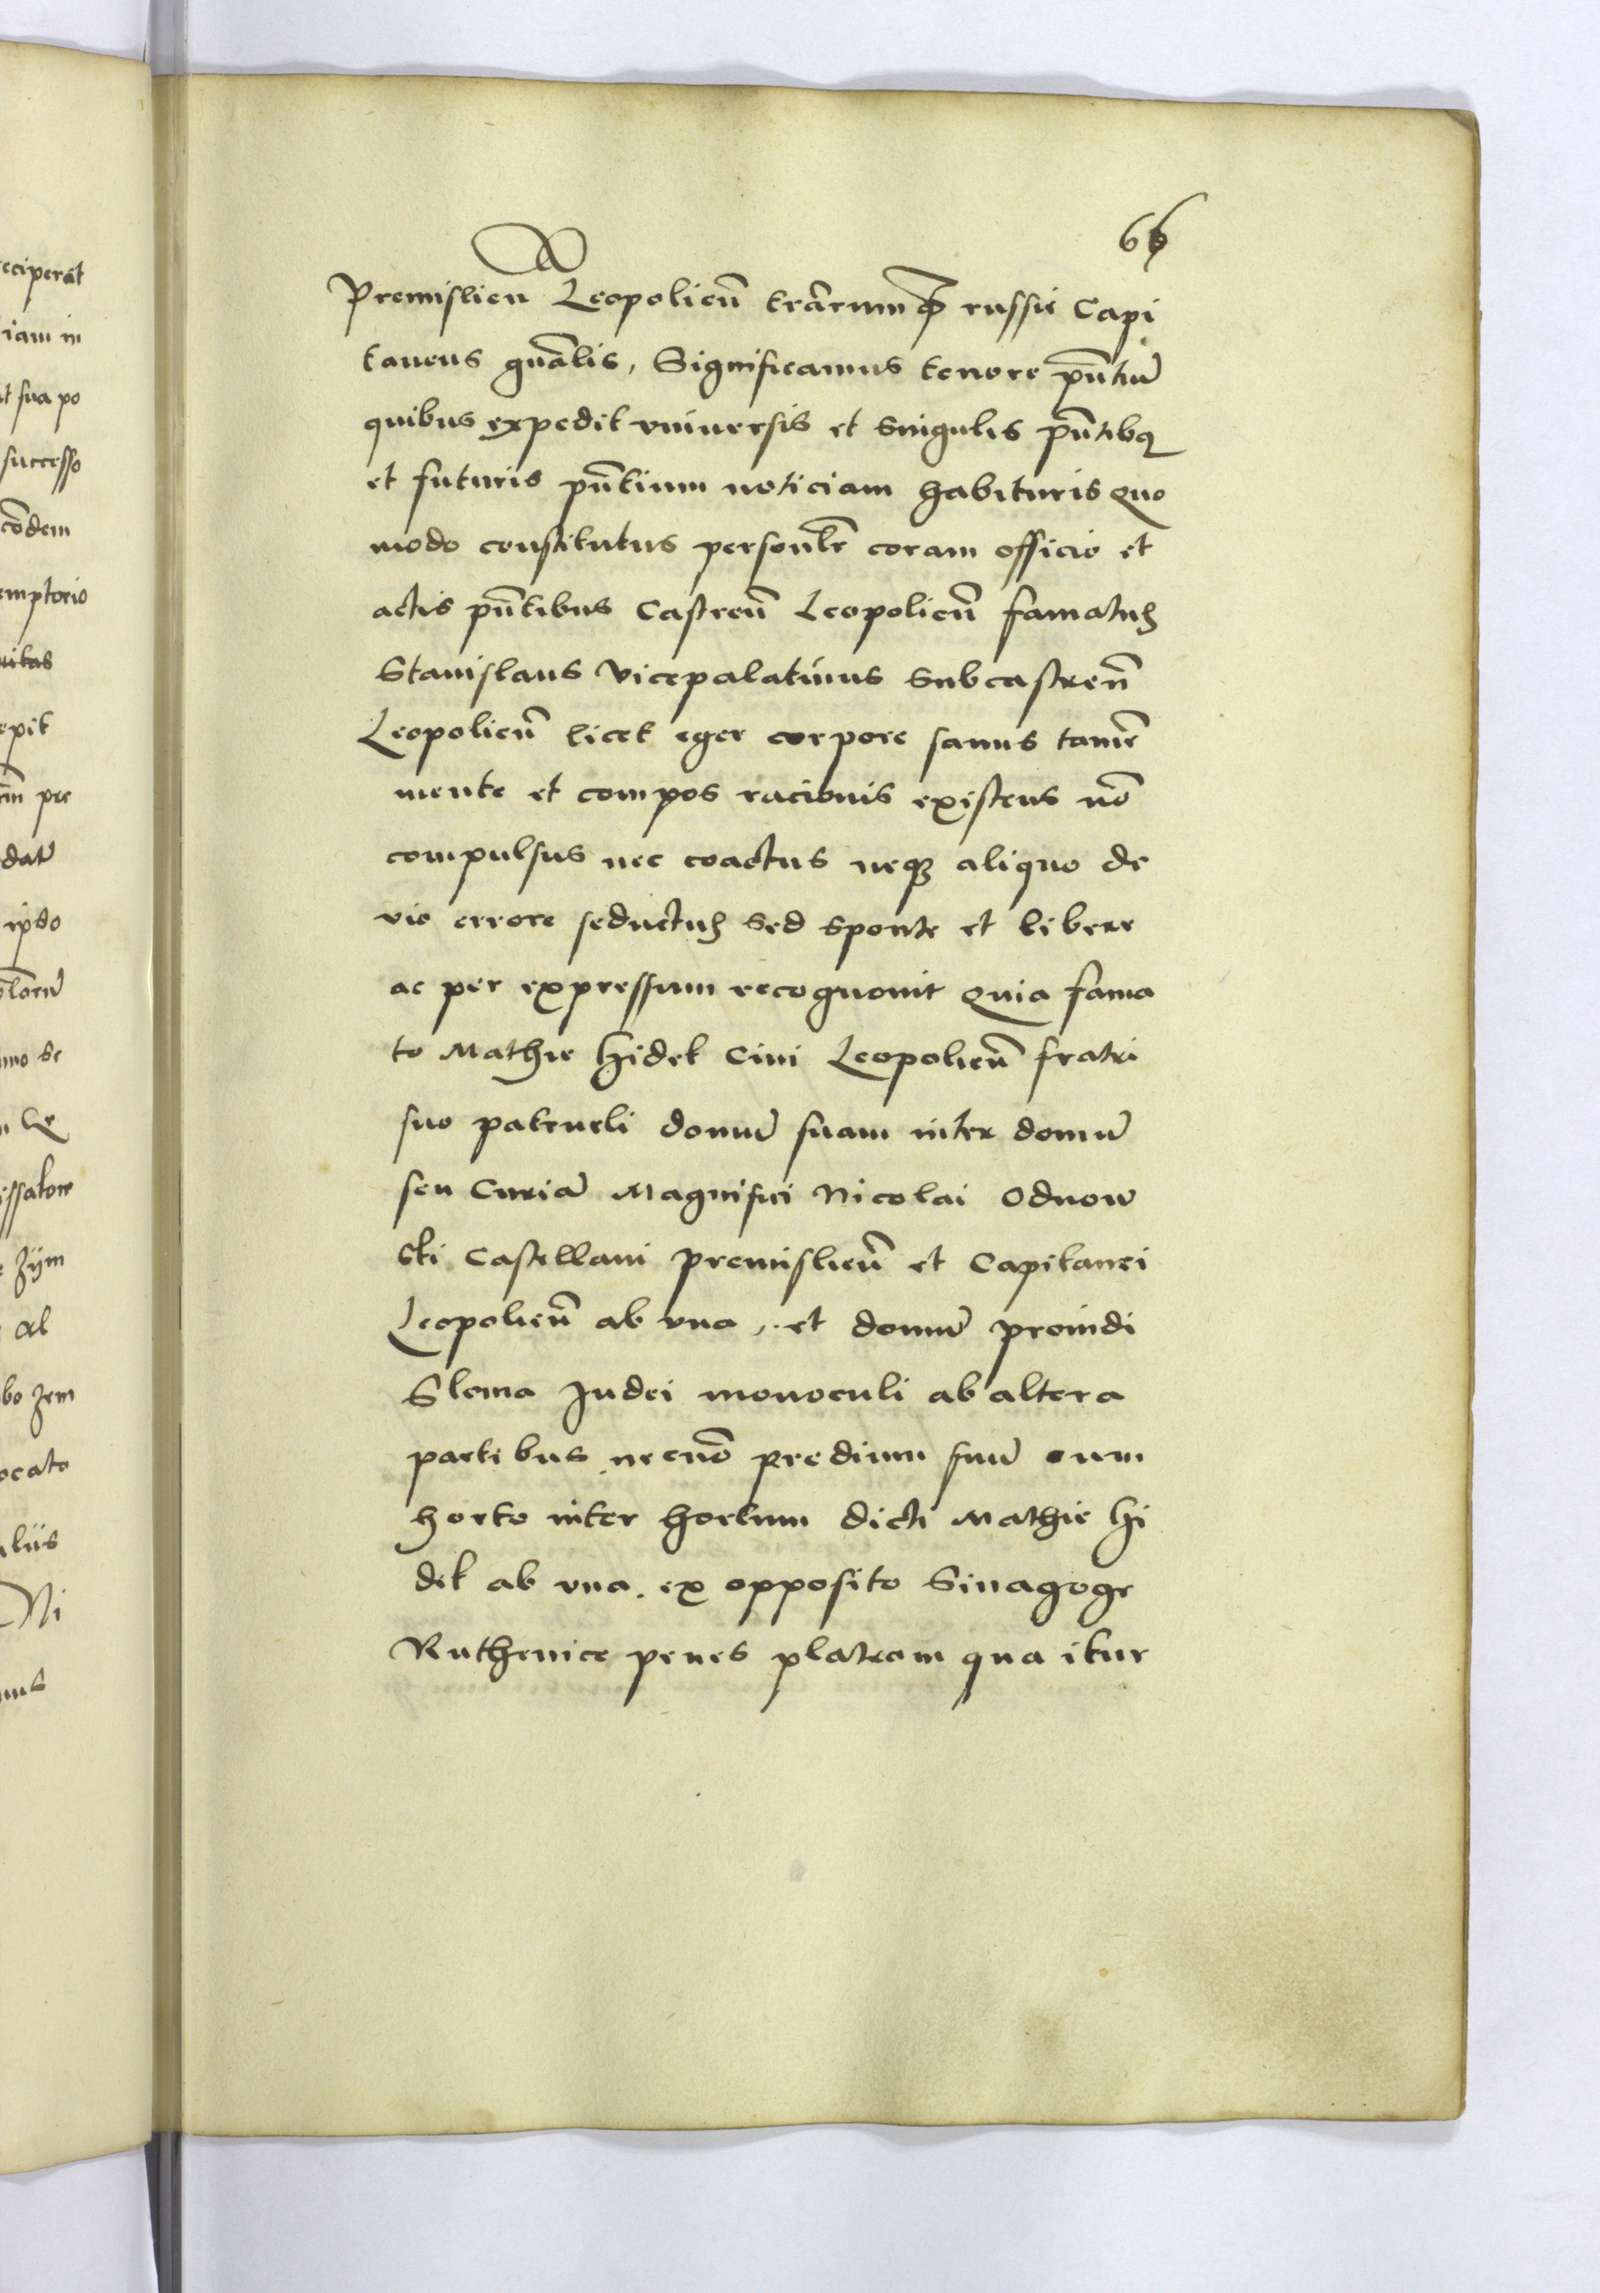 66
Premislien Leopolicn̄ trārumq̄ russie Capi
taneus gn̄alis, Significamus tenore pn̄tiū
quibus expedit vniuersis et singulis pn̄tibꝫ
et futuris pn̄tium noticiam habituris quo
modo constitutus personl̄r coram officio et
actis pn̄tibus Castren̄ Leopolien̄ famatus
Stanislaus Vicepalatinus Subcastren̄
Leopolien̄ licet eger corpore sanus tamē
mente et compos racionis existens nō
compulsus nec coactus neqꝫ aliquo de
vio errore seductus sed sponte et libere
ac per expressum recognouit quia fama
to Mathie hidek Ciui Leopolien̄ fratri
suo patrueli domū suam inter domū
seu Curiā Magnifici Nicolai Odnow
ski Castellani premislien̄ et Capitanei
Leopolien̄ ab vna, et domū prouidi
Sloma Iudei monoculi ab altera
partibus necnō predium suū cum
horto inter hortum dicti Mathie hi
dek ab vna ex opposito Sinagoge
Ruthenice penes plateam qua itur
eciperat
iam in
t sua po
successo
cōdem
emptorio
ritas
epit
pre
datū
ipso
mo se
Le
issatore
zÿm
al
bo zem
ocato
liis
Ni